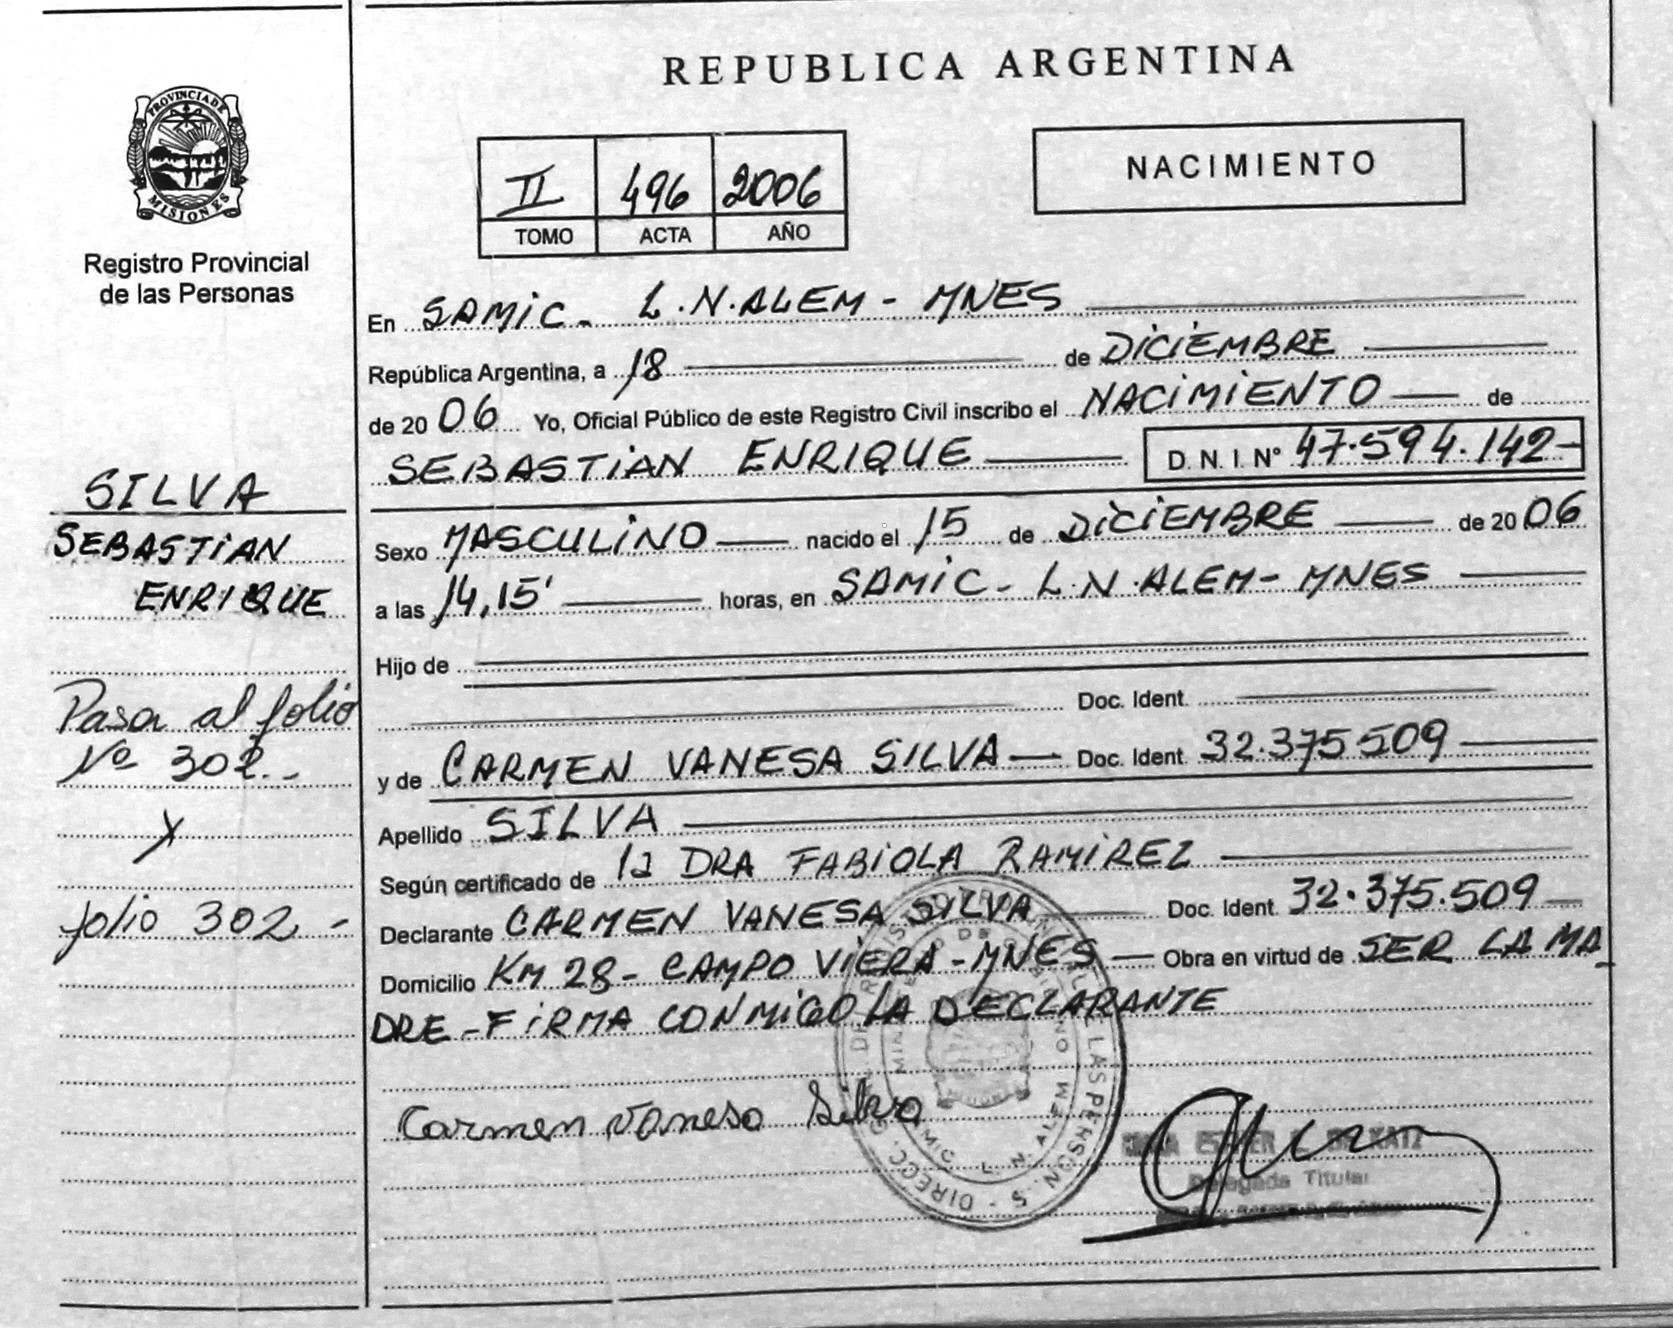 REPUBLICA ARGENTINA
PROVINCIA DE
MISIONES
Registro Provincial
de las Personas
II 496 2006
TOMO ACTA AÑO
NACIMIENTO
SILVA
SEBASTIAN
ENRIQUE
Pasa al folio
Nº 302.-
folio 302.-
En SAMIC - L.N.ALEM - MNES
República Argentina, a 18 de DICIEMBRE
de 2006 Yo, Oficial Público de este Registro Civil inscribo el NACIMIENTO de
SEBASTIAN ENRIQUE D.N.I. Nº 47.594.142-
Sexo MASCULINO nacido el 15 de DICIEMBRE de 2006
a las 14,15' horas, en SAMIC - L.N.ALEM - MNES
Hijo de
Doc. Ident.
y de CARMEN VANESA SILVA Doc. Ident. 32.375.509
Apellido SILVA
Según certificado de la DRA FABIOLA RAMIREZ
Declarante CARMEN VANESA SILVA Doc. Ident. 32.375.509
Domicilio KM 28 - CAMPO VIERA - MNES Obra en virtud de SER LA MA
DRE - FIRMA CONMIGO LA DECLARANTE
Carmen Vanesa Silva
Delegada Titular